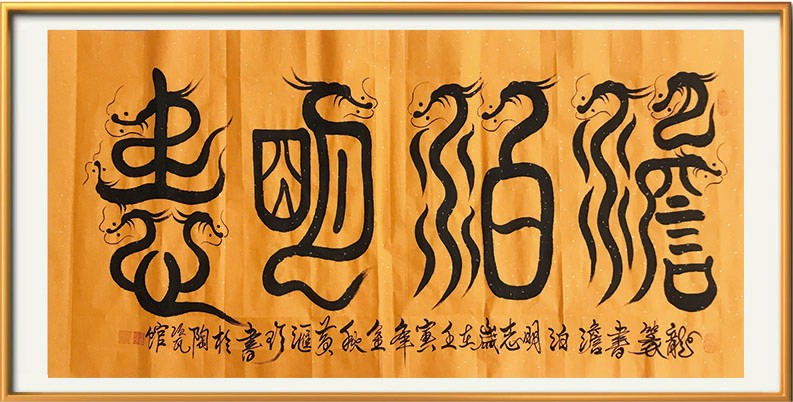 澹泊明志
龍篆書澹泊明志歲在壬寅年金秋黃滙書於陶瓷館